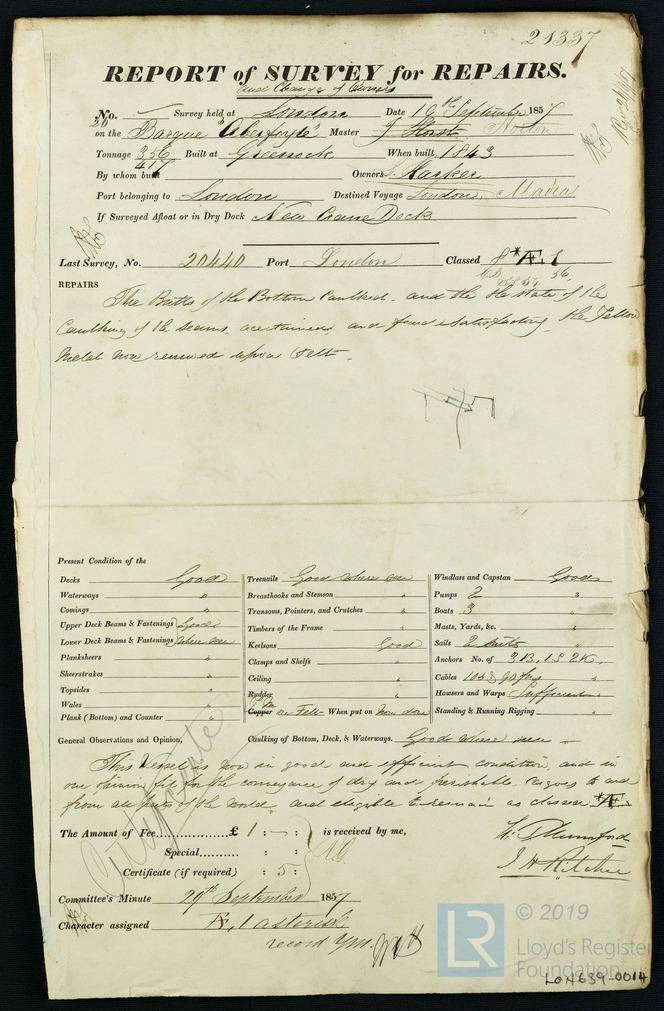 21337
REPORT of SURVEY for REPAIRS.
and Change of Owners
No. Survey held at London Date 10th September 1857
on the Barque "Aberfoyle" Master J Norton
Tonnage 356 Built at Greenock When built 1843
417
By whom built Owners Harker
Port belonging to London Destined Voyage London,
If Surveyed Afloat or in Dry Dock New Crane Dock
Last Survey, No. 20440 Port London Classed 8 *A.1
56.
REPAIRS
The Butts of the Bottom Caulked and the the state of the
Caulking of the seams ascertained and found satisfactory, the Yellow
Metal now renewed upon Felt.
Present Condition of the
Decks Good
Waterways "
Comings "
Upper Deck Beams & Fastenings Good
Lower Deck Beams & Fastenings where seen
Planksheers "
Sheerstrakes "
Topsides "
Wales "
Plank (Bottom) and Counter "
Treenails Good where seen
Breasthooks and Stemson "
Transoms, Pointers, and Crutches "
Timbers of the Frame "
Keelsons Good
Clamps and Shelfs "
Ceiling "
Rudder "
Y M
Copper on Felt When put on Now done
Windlass and Capstan Good
Pumps 2 "
Boats 3 "
Masts, Yards, &c. "
Sails 2 Suits "
Anchors No. of 3 B, 1 S 2 K.
Cables
Hawsers and Warps Sufficient
Standing & Running Rigging "
General Observations and Opinion, Caulking of Bottom, Deck, & Waterways. Good where seen
This Vessel is now in good and efficient condition, and in
our opinion fit for the conveyance of dry and perishable cargoes to and
from all parts of the World and eligible to remain as classed *A.
Certificate
The Amount of Fee £ 1 : - : is received by me,
Special : :
Certificate (if required) : 5 :
W. Mumford
J H Ritchie
Committee's Minute 29th September 1857
Character assigned A, 1 asterisk
record YM.
LR © 2019
Lloyd's Register
Foundation
LON639-0014